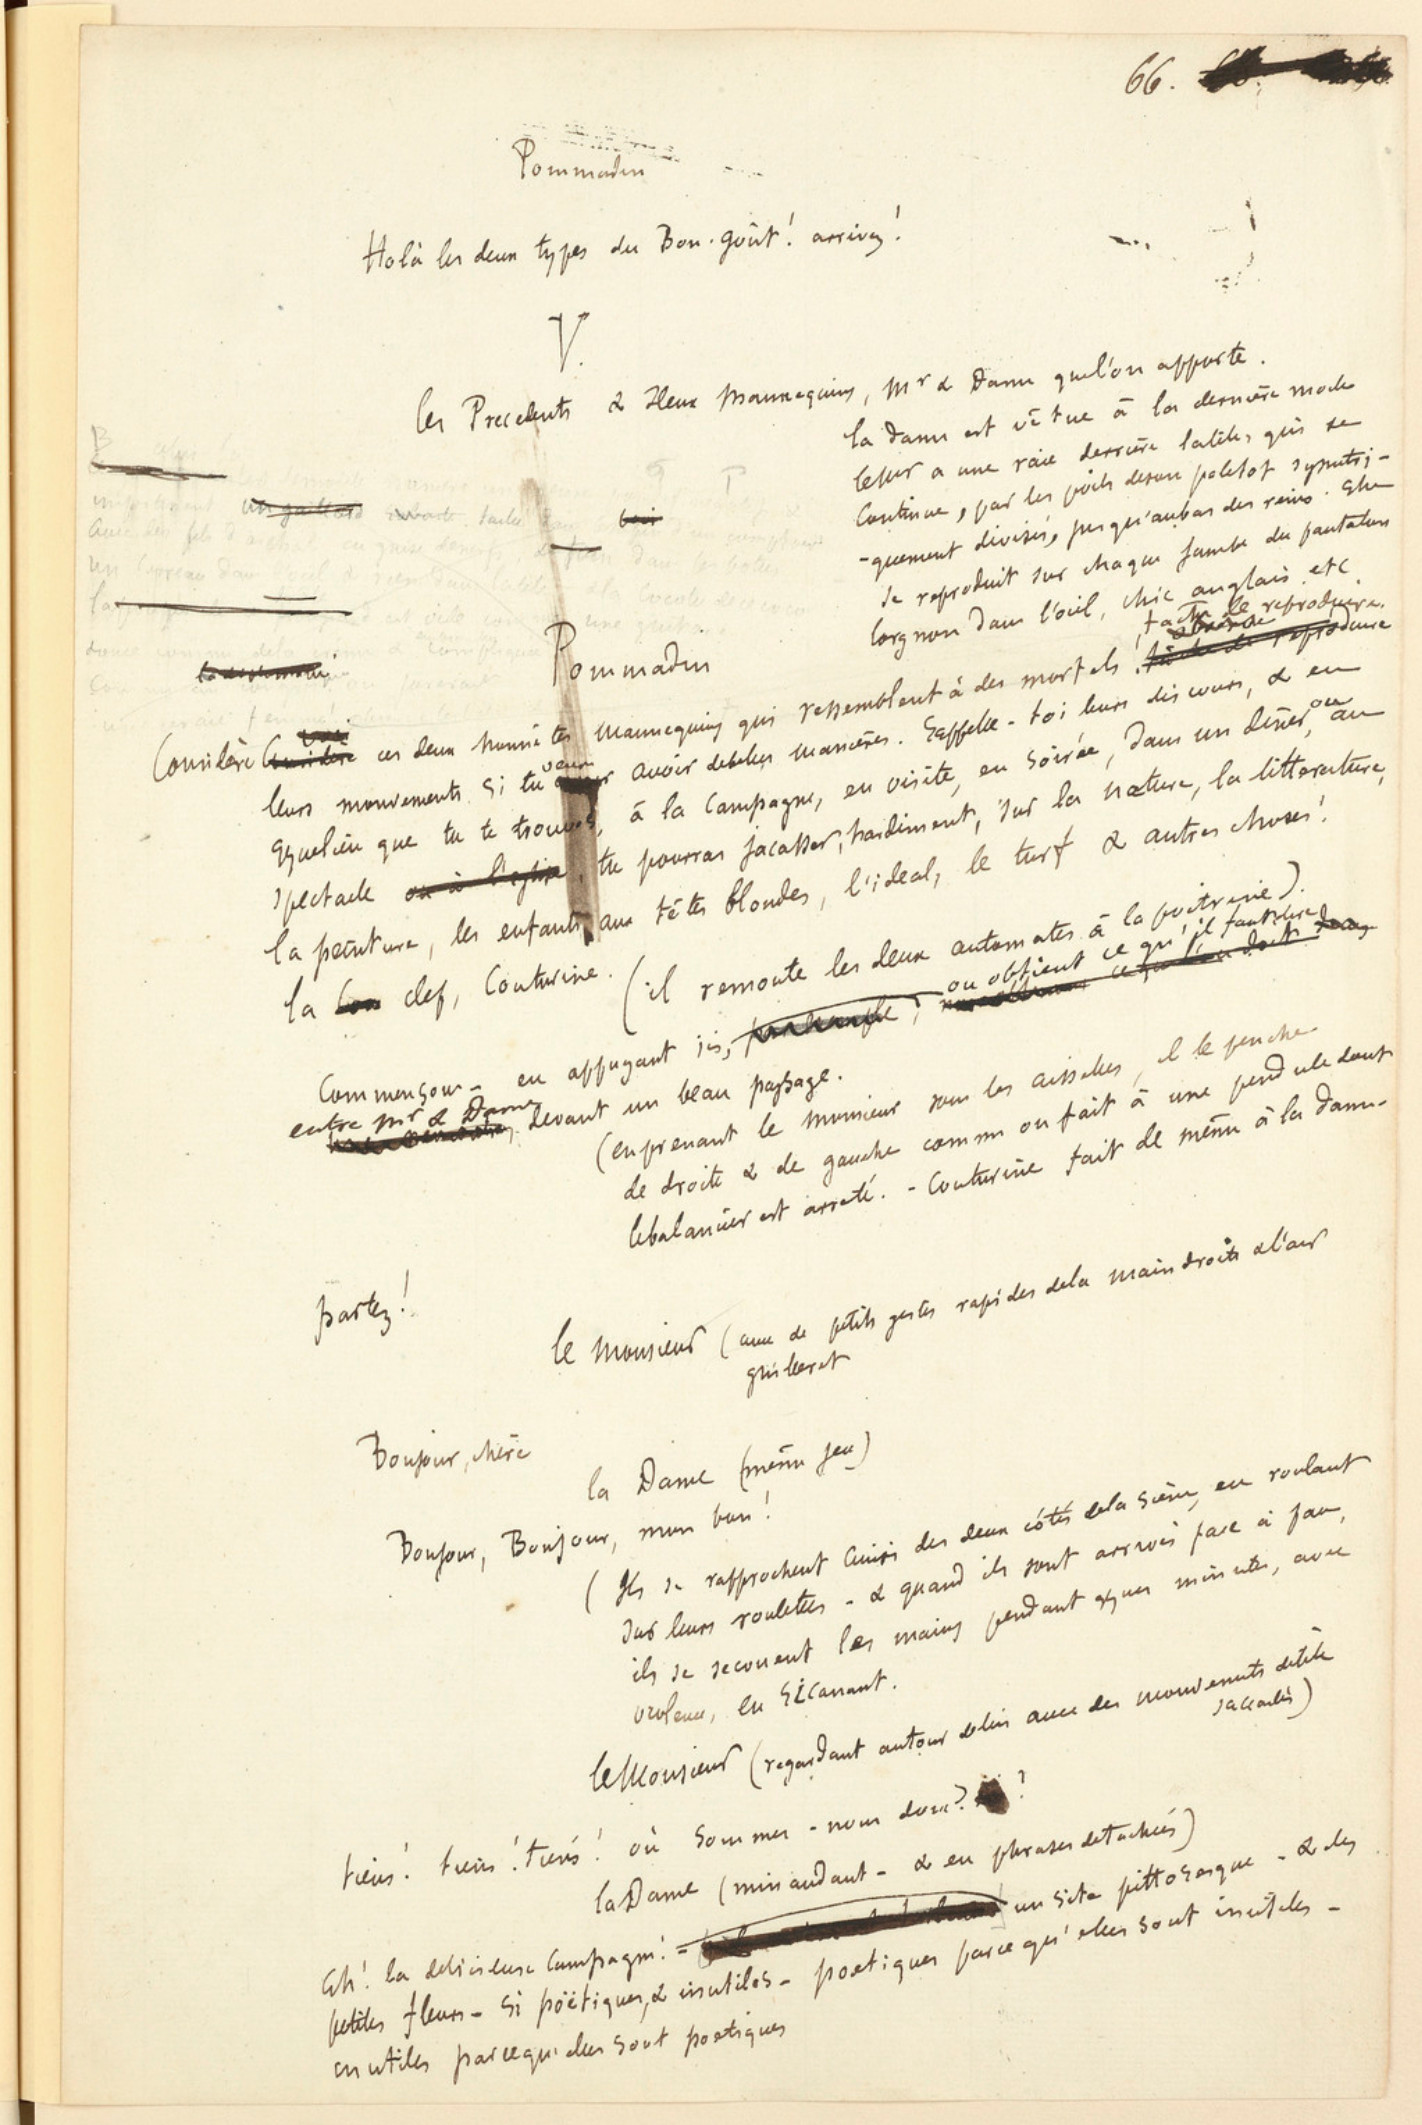 66.
Pommadin
Holà les deux types du Bon-goût! arrivez!
V.
les Precedents & Deux Mannequins, Mr & Dame que l'on apporte.
la Dame est vêtue à la dernière mode
le Mr a une raie derrière la tête, qui se
continue, par les poils de son paletot symétri-
-quement divisés, jusqu'au bas des reins. Elle
se reproduit sur chaque jambe du pantalon
lorgnon dans l'oeil, chic anglais. etc
Pommadin
tache de reproduire.
Considère ces deux honnêtes mannequins qui ressemblent à des mortels!
leurs mouvements si tu veux avoir de belles manières. Rappelle-toi leurs discours, & en
qqque lieu que tu te trouves, à la campagne, en visite, en soirée, dans un dîner, ou au
spectacle ou à l'eglise, tu pourras jacasser, hardiment, sur la nature, la litterature,
la peinture, les enfants aux têtes blondes, l'idéal, le turf & autres choses!
la clef, Couturine. (il remonte les deux automates à la poitrine).
Commençons - en appuyant ici, on obtient ce qu'il faut dire
entre Mr & Dame, devant un beau paysage.
(en prenant le monsieur sous les aisselles, il le penche
de droite & de gauche comme on fait à une pendule dont
le balancier est arreté. - Couturine fait de même à la dame.
partez!
le Monsieur (avec de petits gestes rapides de la main droite & l'air
guilleret
Bonjour, chère
la Dame (même jeu)
Bonjour, Bonjour, mon bon!
(Ils se rapprochent ainsi des deux côtés de la scène, en roulant
sur leurs roulettes - & quand ils sont arrivés face à face,
ils se secouent les mains pendant qques minutes, avec
violence, en ricanant.
le Monsieur (regardant autour de lui avec des mouvements de tête
saccadés)
tiens! tiens! tiens! où sommes-nous donc?
la Dame (minaudant - & en phrases detachées)
Ah! la delicieuse campagne! - un site pittoresque - & des
petites fleurs - si poëtiques, & inutiles - poetiques parce qu'elles sont inutiles -
inutiles parce qu'elles sont poetiques